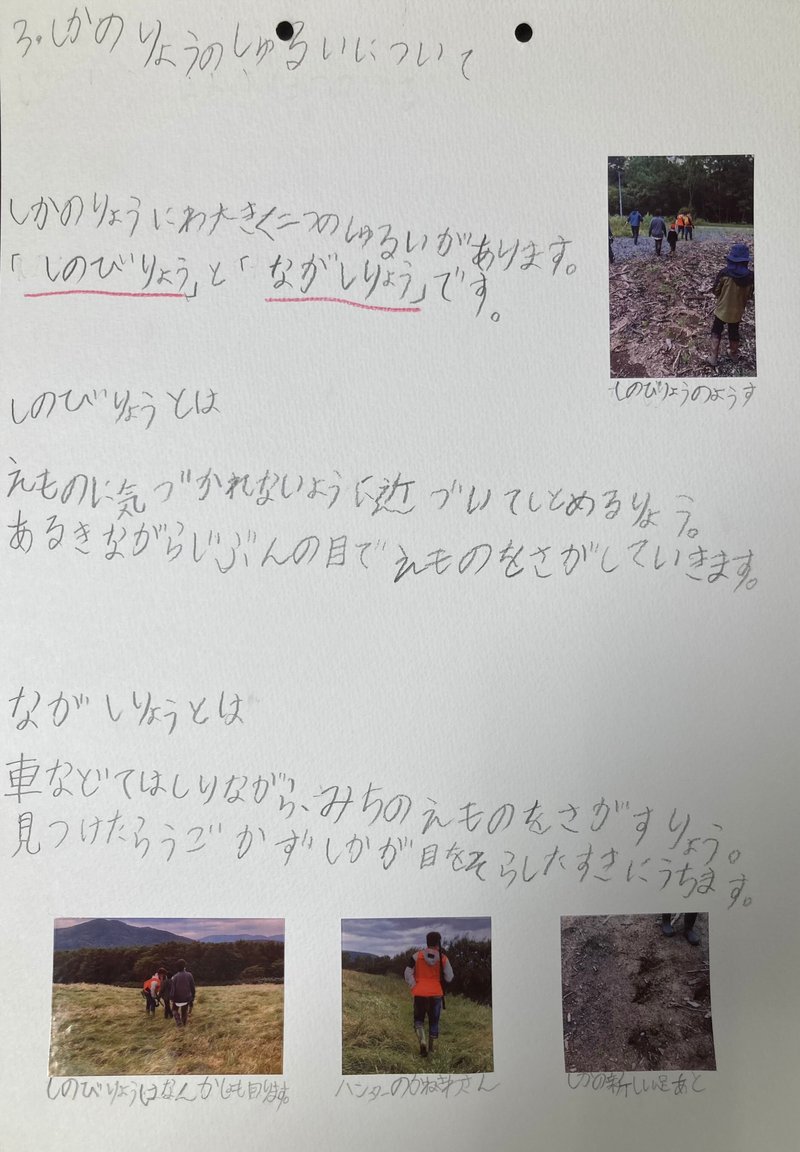 3.しかのりょうのしゅるいについて
しかのりょうにわ大きく二つのしゅるいがあります。
「しのびりょう」と「ながしりょう」です。
しのびりょうのようす
しのびりょうとは
えものに気づかれないように近づいてしとめるりょう。
あるきながらじぶんの目でえものをさがしていきます。
ながしりょうとは
車などてはしりながら、みちのえものをさがすりょう。
見つけたらうごかずしかが目をそらしたすきにうちます。
しのびりょうはなん
ハンターのかねさん
しかの新しい足あと